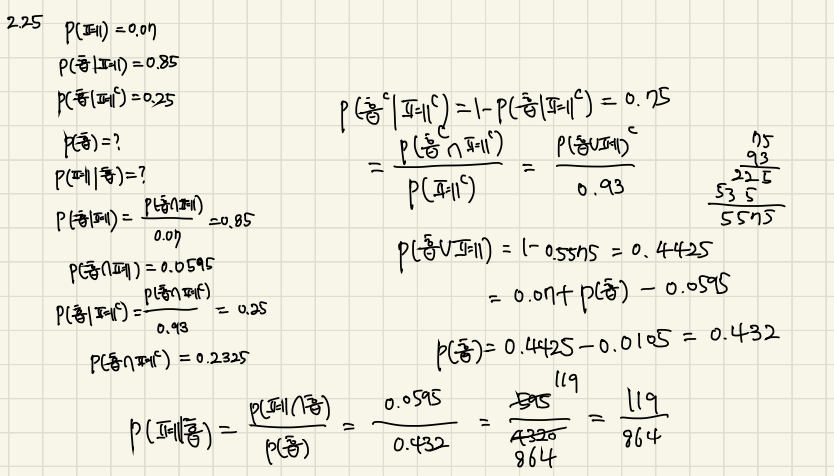 2.25
P(폐) = 0.07
P(흡|폐) = 0.85
P(흡|폐ᶜ) = 0.25
P(흡) = ?
P(폐|흡) = ?
P(흡|폐) = P(흡∩폐) / 0.07 = 0.85
P(흡∩폐) = 0.0595
P(흡|폐ᶜ) = P(흡∩폐ᶜ) / 0.93 = 0.25
P(흡∩폐ᶜ) = 0.2325
P(흡ᶜ|폐ᶜ) = 1 - P(흡|폐ᶜ) = 0.75
= P(흡ᶜ∩폐ᶜ) / P(폐ᶜ) = P(흡∪폐)ᶜ / 0.93
75
93
225
535
5575
P(흡∪폐) = 1 - 0.5575 = 0.4425
= 0.07 + P(흡) - 0.0595
P(흡) = 0.4425 - 0.0105 = 0.432
P(폐|흡) = P(폐∩흡) / P(흡) = 0.0595 / 0.432 = 595 119 / 4320 864 = 119 / 864